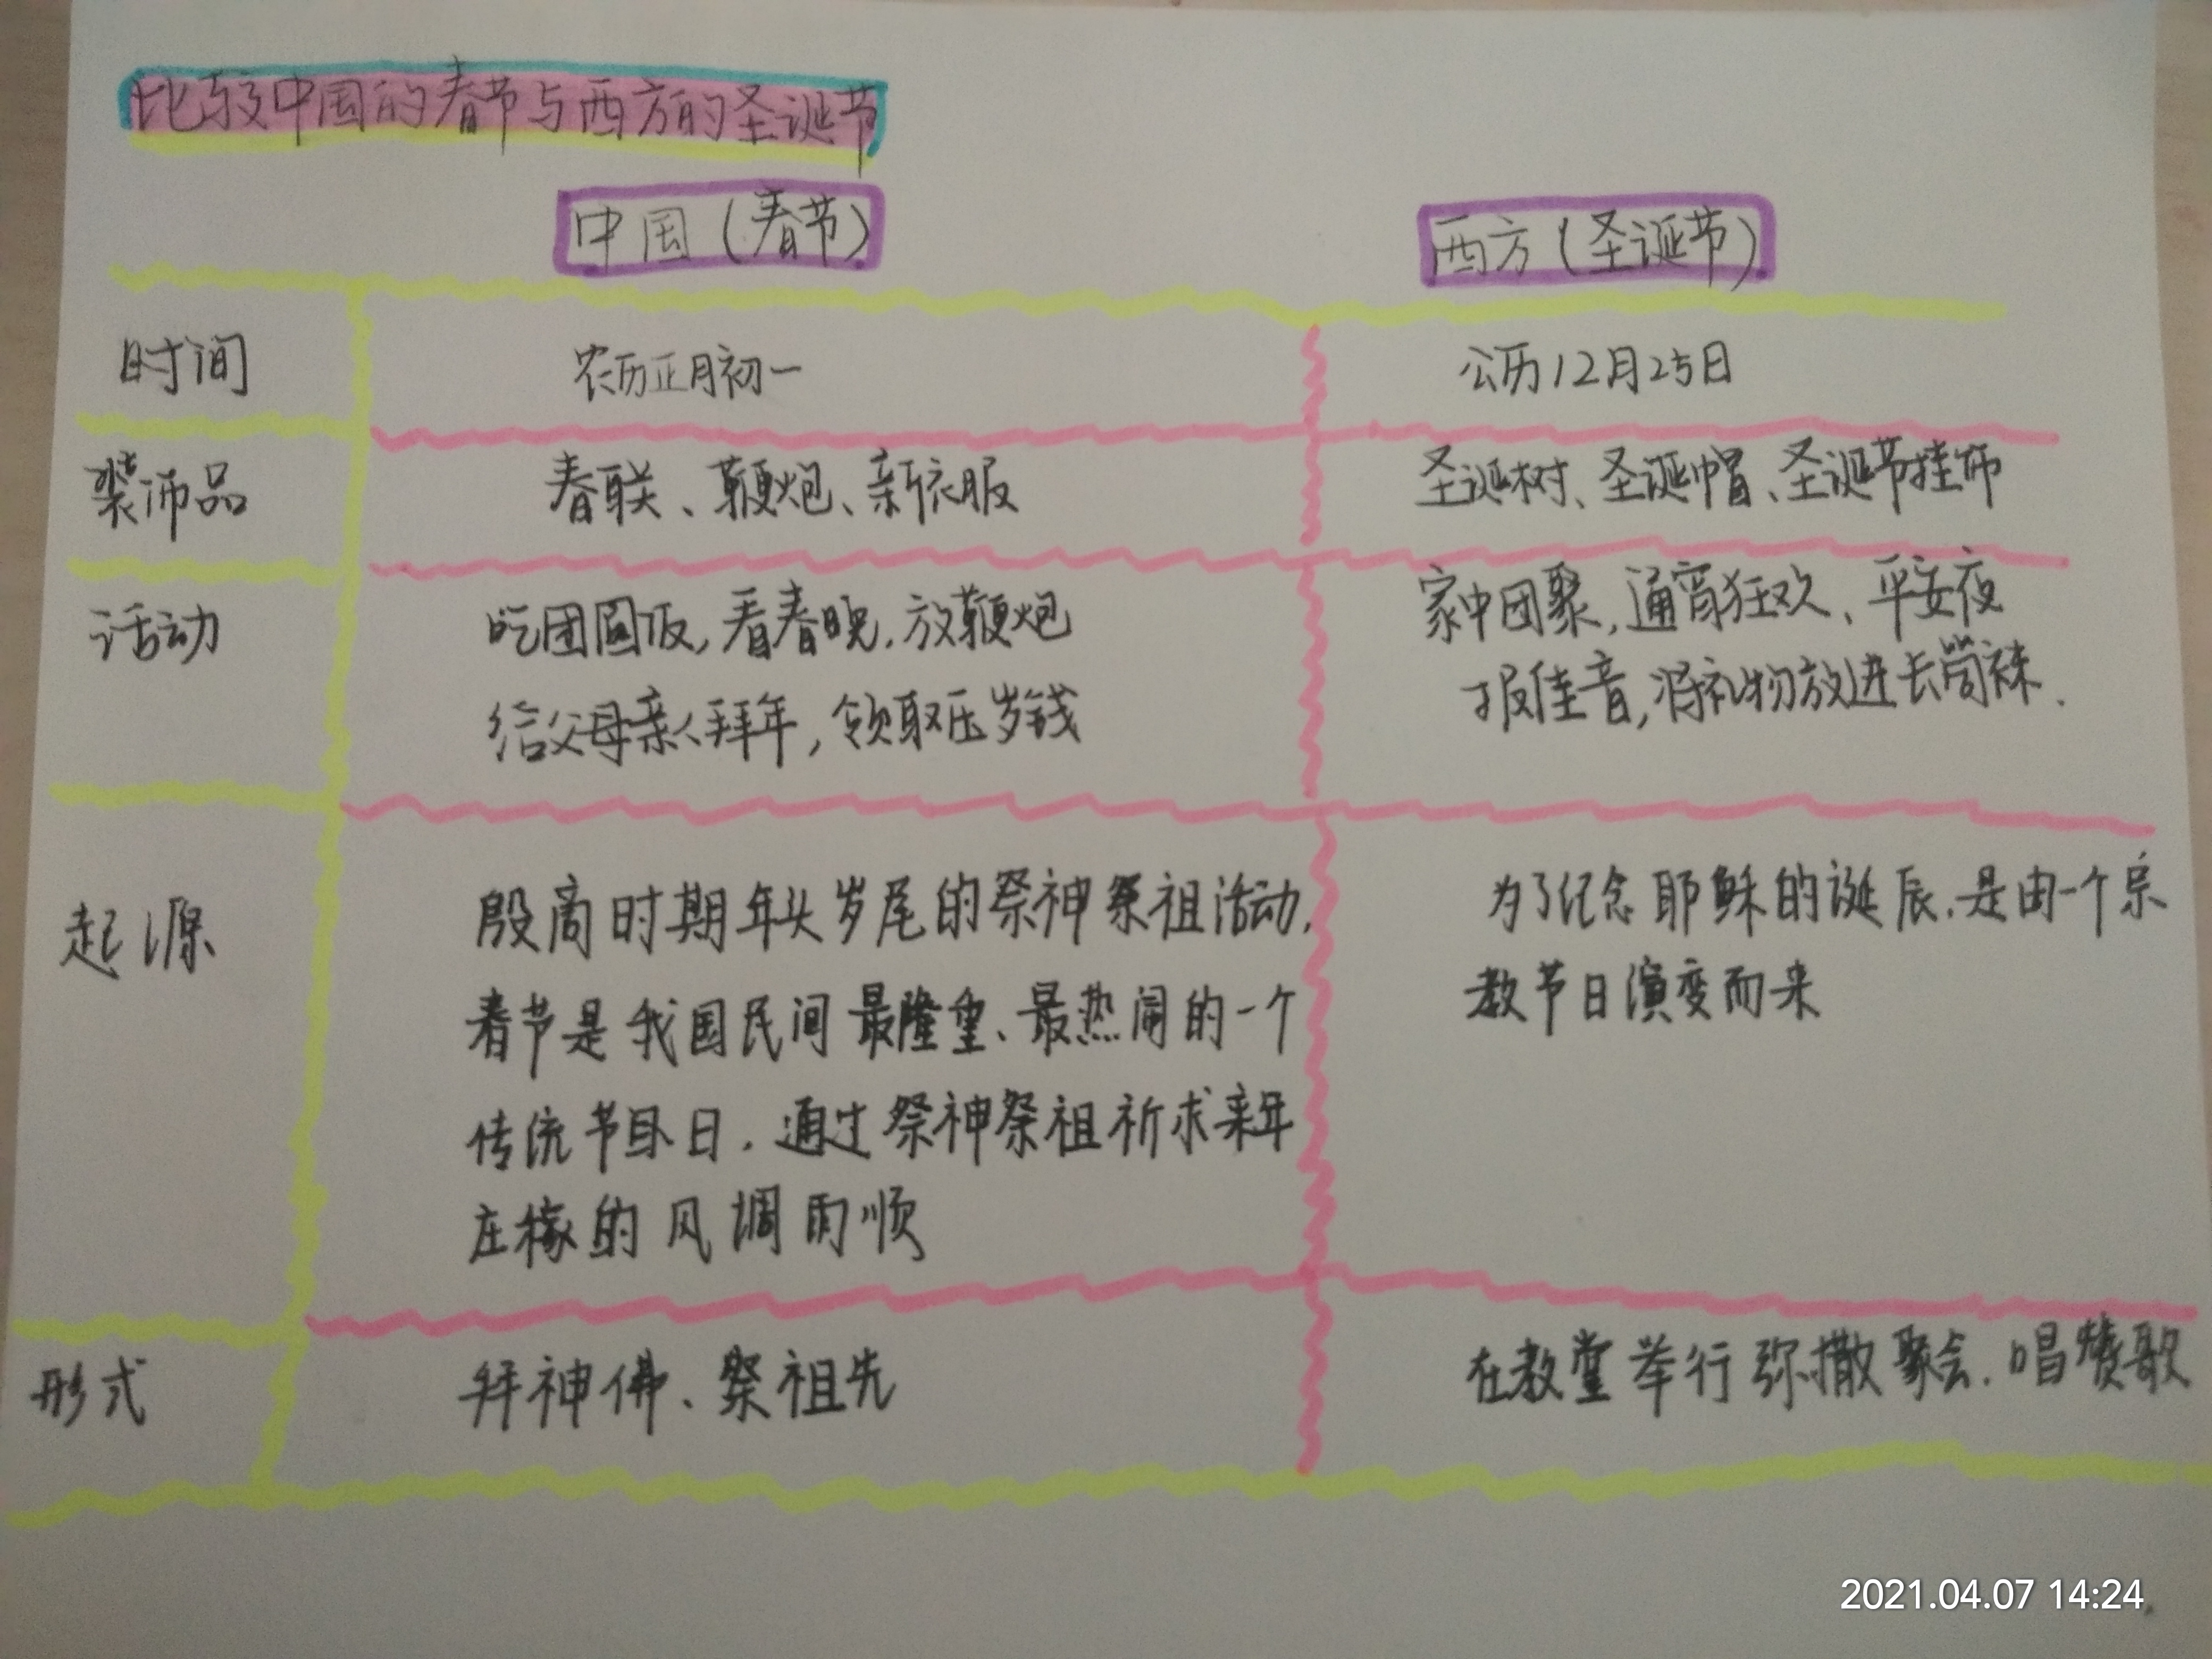 比较中国的春节与西方的圣诞节
中国(春节) 西方(圣诞节)
时间 农历正月初一 公历12月25日
装饰品 春联、鞭炮、新衣服 圣诞树、圣诞帽、圣诞节挂饰
活动 吃团圆饭,看春晚,放鞭炮 家中团聚,通宵狂欢、平安夜
给父母亲人拜年,领取压岁钱 报佳音,将礼物放进长筒袜.
起源 殷商时期年头岁尾的祭神祭祖活动, 为了纪念耶稣的诞辰.是由一个宗
春节是我国民间最隆重、最热闹的一个 教节日演变而来
传统节日.通过祭神祭祖祈求来年
庄稼的风调雨顺
形式 拜神佛、祭祖先 在教堂举行弥撒聚会.唱赞歌
2021.04.07 14:24